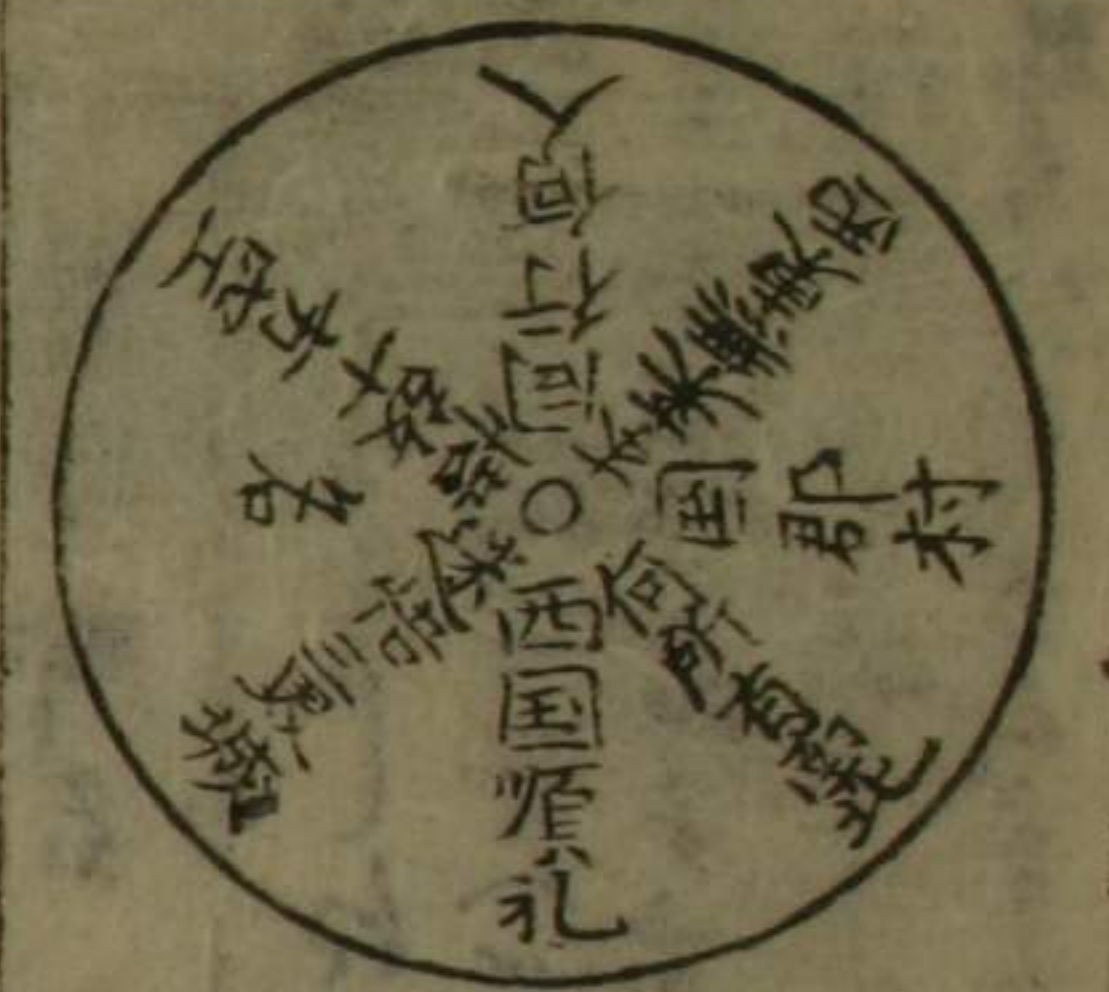 同行何人
本来無東西
国郡村
何処有南北
西国順礼
迷故三界城
名
悟故十方空